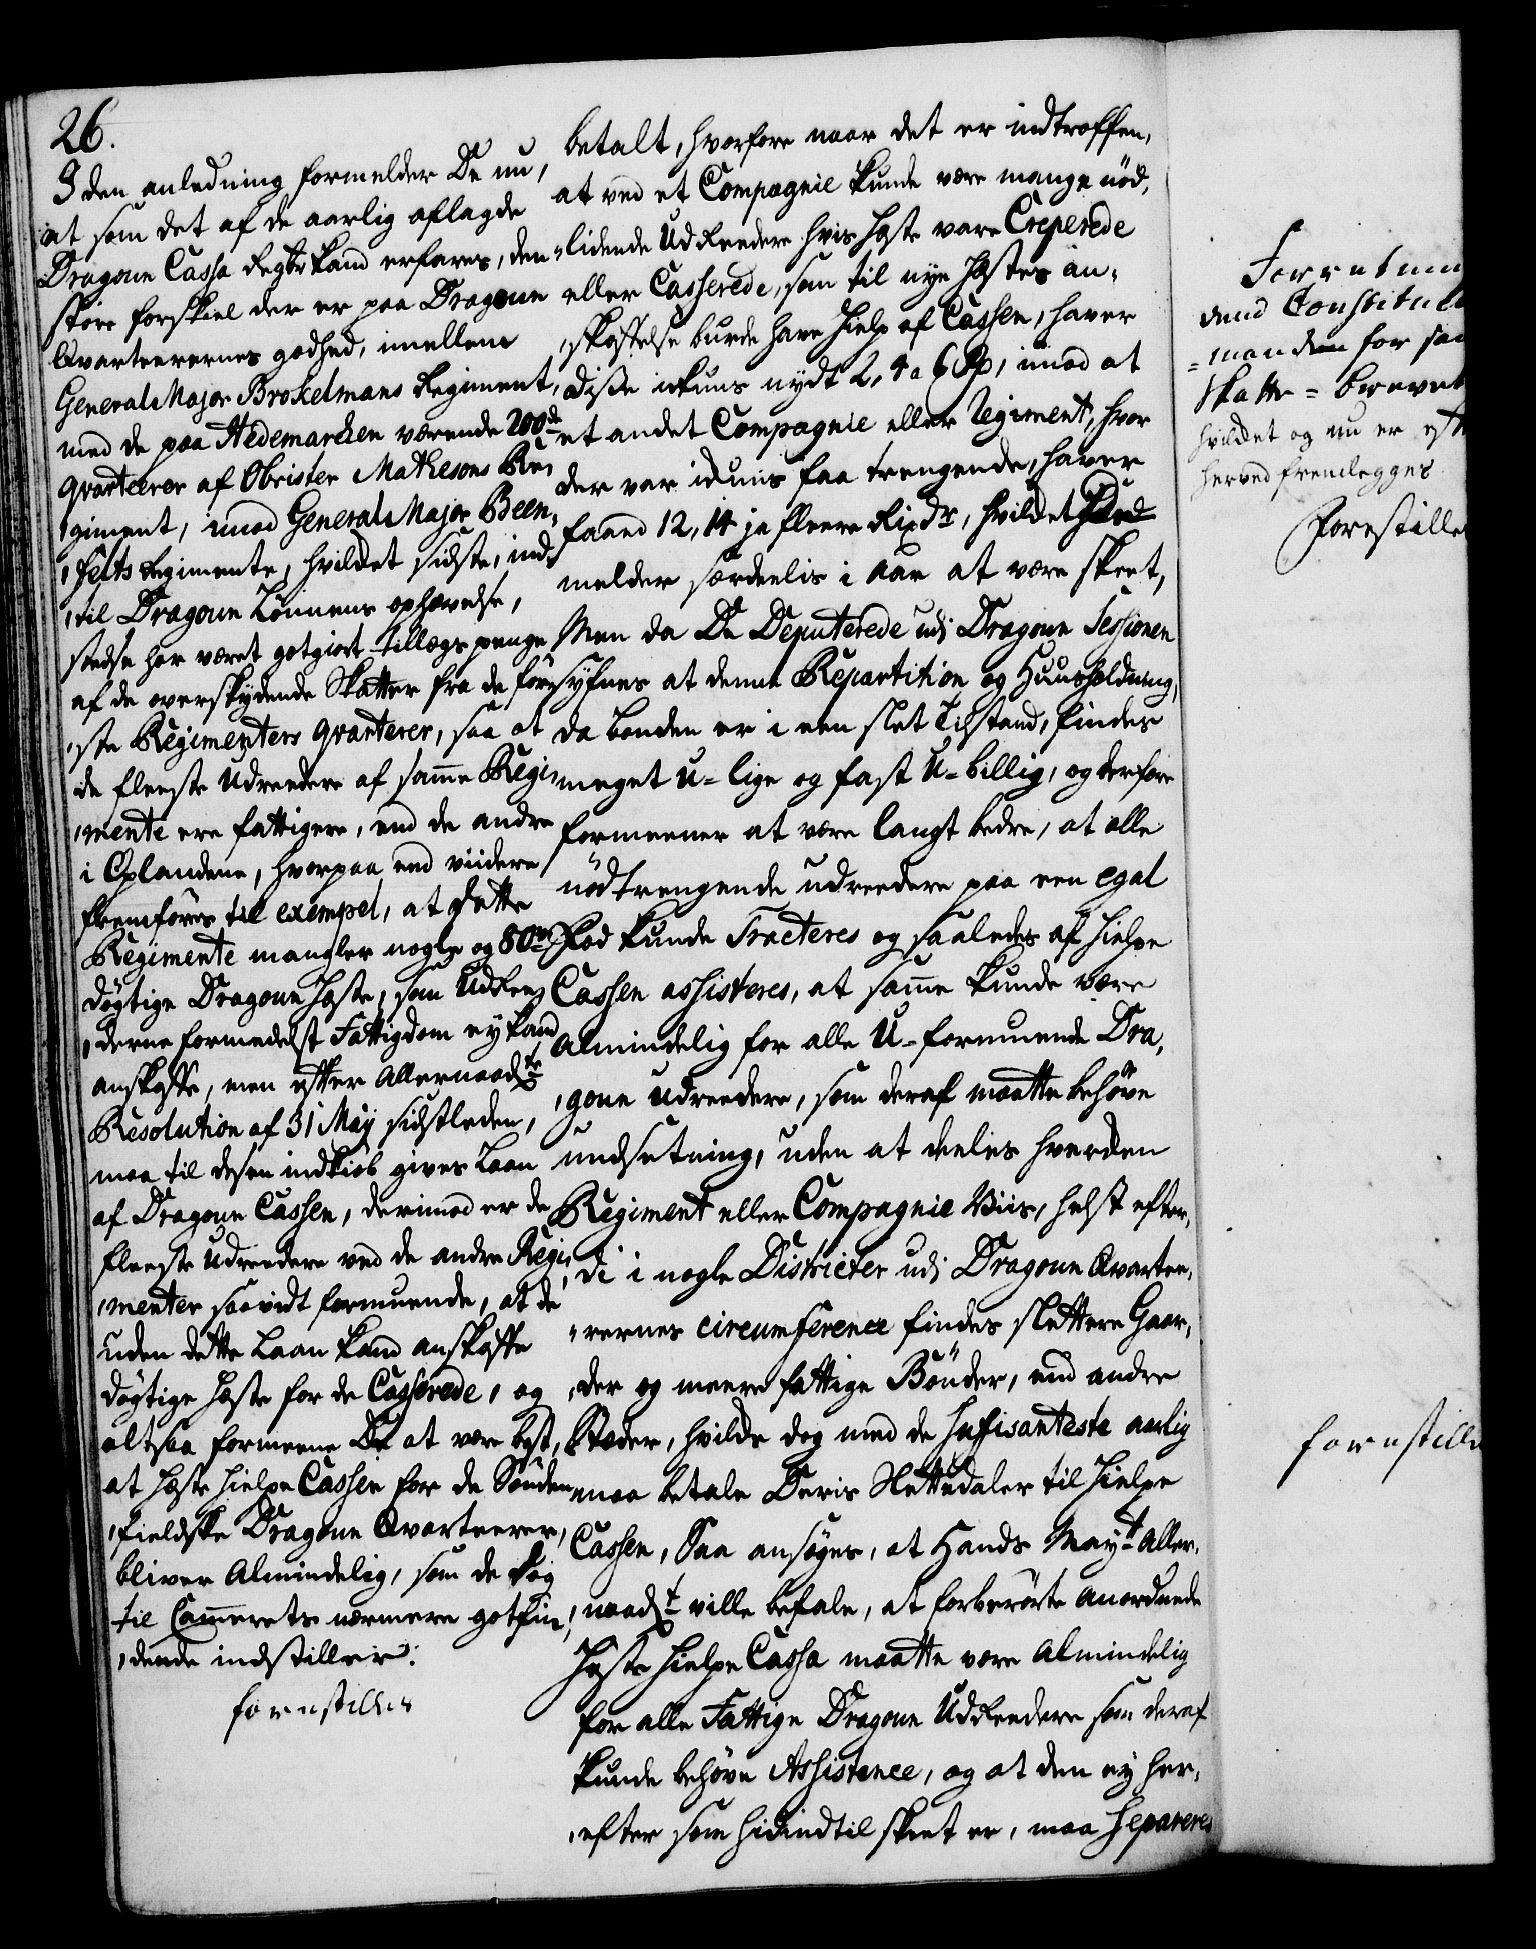 26.
I den anledning formelder De nu,
at som det af de aarlig aflagde
Dragoun Cassa Regnsk: kand erfares, den
store forskiel der er paa Dragoun
Qvarteerernes godhed, imellem
General Major Brokelmans Regiment,
med de paa Hedemarcken værende 200de
qvarteerer af Obrister Mathesons Re,
,giment, imod General Major Been,
,felts Regimente, hvilcket sidste, ind,
,til Dragoun Lønnens ophævelse,
stedse har været godtgiort tillægs penge
af de overskydende Skatter fra de før,
,ste Regimenters qvarterer, saa at
de fleeste Udreedere af samme Regi,
,mente ere fattigere, end de andre
i Oplandene, hvorpaa end viidere
fremføres til exempel, at dette
Regimente mangler nogle og 80ve
dögtige Dragoun Heste, som Udree,
,derne formedelst Fattigdom ey kand
anskaffe, men efter Allernaadste
Resolution af 31 May sidstleden,
maa til deres indkiøb gives Laan
af Dragoun Cassen, derimod er de
fleeste Udreedere ved de andre Regi,
,menter saavidt formuende, at de
uden dette Laan kand anskaffe
dögtige Heste for de Casserede, og
altsaa formeene De at være best,
at Heste Hielpe Cassen for de Sønden,
,fieldske Dragoun Qvarteerer,
bliver Almindelig, som de dog
til Cammerets nærmere gotfin,
,dende indstiller.
forestilles
betalt, hvorfore naar det er indtroffen,
at ved et Compagnie kunde være mange nød,
,lidende Udreedere hvis Heste vare Creperede
eller Casserede, som til nye Hestes an,
,skaffelse burde have Hielp af Cassen, haver
disse ickuns nydt 2, 4 a 6 Rd, imod at
et andet Compagnie eller Regiment, hvor
der var ickuns faa trengende, haver
faaed 12, 14 ja fleere Rixdr, hvilcket
melder særdeelis i Aar at være skeet,
Men da De Deputerede udj Dragoun Sessionen
syfnes at denne Repartition og Huusholdning,
da bonden er i een slet Tilstand, findes
meget U=lige og fast U=billig, og derfore
formeener at være langt bedre, at alle
nødtrengende udreedere paa een egal
Fod kunde Tracteres og saaledes af Hielpe
Cassen assisteres, at samme kunde være
Almindelig for alle U-formuende Dra,
,goun udreedere, som deraf maatte behøve
undsetning, uden at deeles hverden
Regiment eller Compagnie Viis, helst efter,
,di i nogle Districter udj Dragoun Qvartee,
,rernes circumference findes slettere Gaar,
,der og meere fattige Bønder, end andre
Stæder, hvilcke dog med de Suffisanteste aarlig
maa betale Deris Slettedaler til Hielpe
Cassen, Saa ansøges, at Hands Mayt Aller,
,naadt ville befale, at forberørte anordnede
Heste Hielpe Cassa maatte være Almindelig
for alle Fattige Dragoun Udreedere som deraf
kunde behøve Assistence, og at den ey her,
,efter som hidindtil skeet er, maa Separeres
dend Constitu
=manden for
Skatte=
hvilcket og nu er
herved fremlegges
forestille
forestille